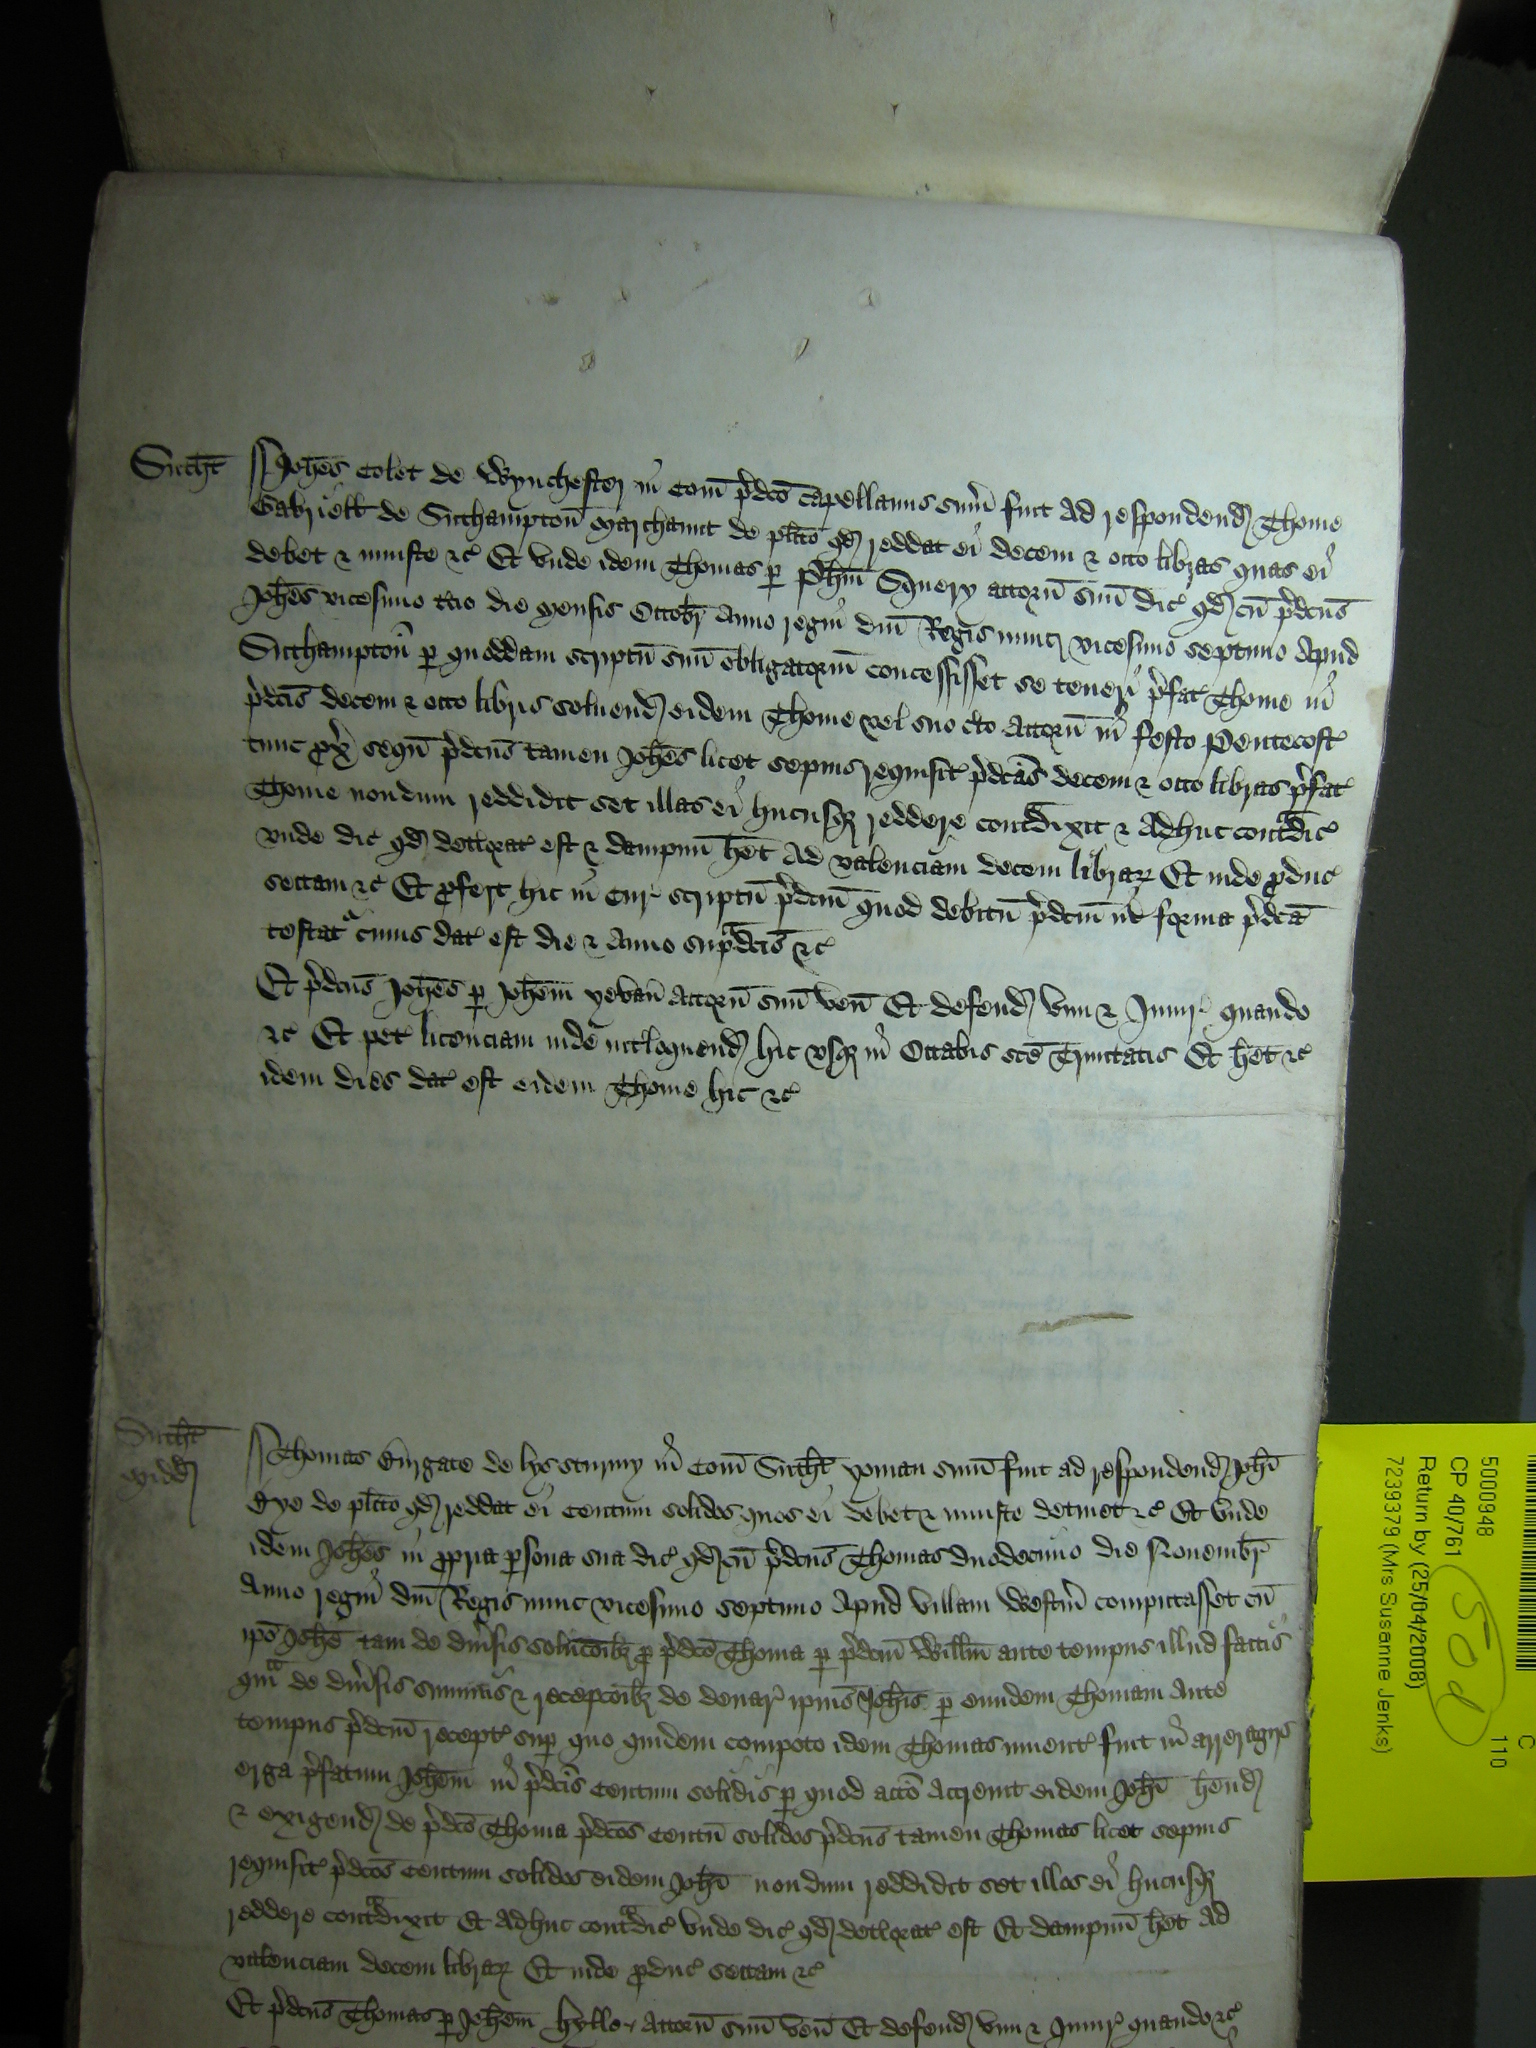 Sutht̄
Joh̄es Colet de Wynchestr̄ in Com̄ p̄dc̄o Capellanus sum̄ fuit ad respondend̄ Thome
Gabriell de Suthampton̄ Marchaunt de pl̄ito qd̄ reddat ei decem & octo libras quas ei
debet & iniuste &c̄ Et vnde idem Thomas p Joh̄em Squery attorn̄ suū dic̄ qd̄ cū p̄dc̄us
Joh̄es vicesimo t̄cio die Mensis Octobr̄ Anno regni dn̄i Regis nunc vicesimo septimo apud
Suthampton̄ p quoddam scriptū suū obligatoriū concessisset se teneri p̄fat̄ Thome in
p̄dc̄is decem & octo libris soluend̄ eidem Thome vel suo c̄to attorn̄ in festo Pentecost̄
tunc px̄ sequn̄ p̄dc̄us tamen Joh̄es licet sepius requisit̄ p̄dc̄as decem & octo libras p̄fat̄
Thome nondum reddidit set illas ei hucusq̄ reddere contᵃdixit & adhuc contᵃdic̄
vnde dic̄ qd̄ det̄iorat̄ est & dampnū h̄et ad valenciam decem librar̄ Et inde p̄duc̄
sectam &c̄ Et p̄fert hic in Cur̄ scriptū p̄dc̄m quod debitū p̄dc̄m in forma p̄dc̄a
testat̄ᵃ cuius dat̄ est die & anno sup̄ᵃdc̄is &c̄
Et p̄dc̄us Joh̄es p Joh̄em attorn̄ suū ven̄ Et defend̄ vim & Iniur̄ quando
&c̄ Et pet̄ licenciam inde int̄loquend̄ hic vsq̄ in Octabis sc̄e Trinitatis Et h̄et &c̄
idem dies dat̄ est eidem Thome hic &c̄
Sutht̄
Midd̄
Thomas Burgate de lysturmy in Com̄ Sutht̄ yoman sum̄ fuit ad respondend̄ Joh̄i
Eye de pl̄ito qd̄ reddat ei Centum solidos quos ei debet & iniuste detinet &c̄ Et vnde
idem Joh̄es in p̄pria p̄sona sua dic̄ qd̄ cū p̄dc̄us Thomas duodecimo die Nouembr̄
Anno regni dn̄i Regis nunc vicesimo septimo apud villam Westm̄ computasset cū
ip̄o Joh̄e tam de diūsis soluc̄oib̄ p p̄dc̄o Thoma p p̄dc̄m Will̄m ante tempus illud factis
qᵃm de diūsis sum̄is & recepc̄oib̄ de denar̄ ip̄ius Joh̄is p eundem Thomam ante
tempus p̄dc̄m recept̄ sup̄ quo quidem compoto idem Thomas inuent̄ fuit in arreragijs
erga p̄fatum Joh̄em in p̄dc̄is Centum solidis p quod acc̄o accreuit eidem Joh̄i h̄end̄
& exigend̄ de p̄dc̄o Thoma p̄dc̄os Centū solidos p̄dc̄us tamen Thomas licet sepius
requisit̄ p̄dc̄os Centum solidos eidem Joh̄i nondum reddidit set illos ei hucusq̄
reddere contᵃdixit Et adhuc contᵃdic̄ vnde dic̄ qd̄ det̄iorat̄ est Et dampnū h̄et ad
valenciam decem librar̄ Et inde p̄duc̄ sectam &c̄
Et p̄dc̄us Thomas p Joh̄em Hyller attorn̄ suū ven̄ Et defend̄ vim & Iniur̄ quando &c̄
C
110
5000948
CP 40/761
Return by (25/04/2008)
7239379 (Mrs Susanne Jenks)